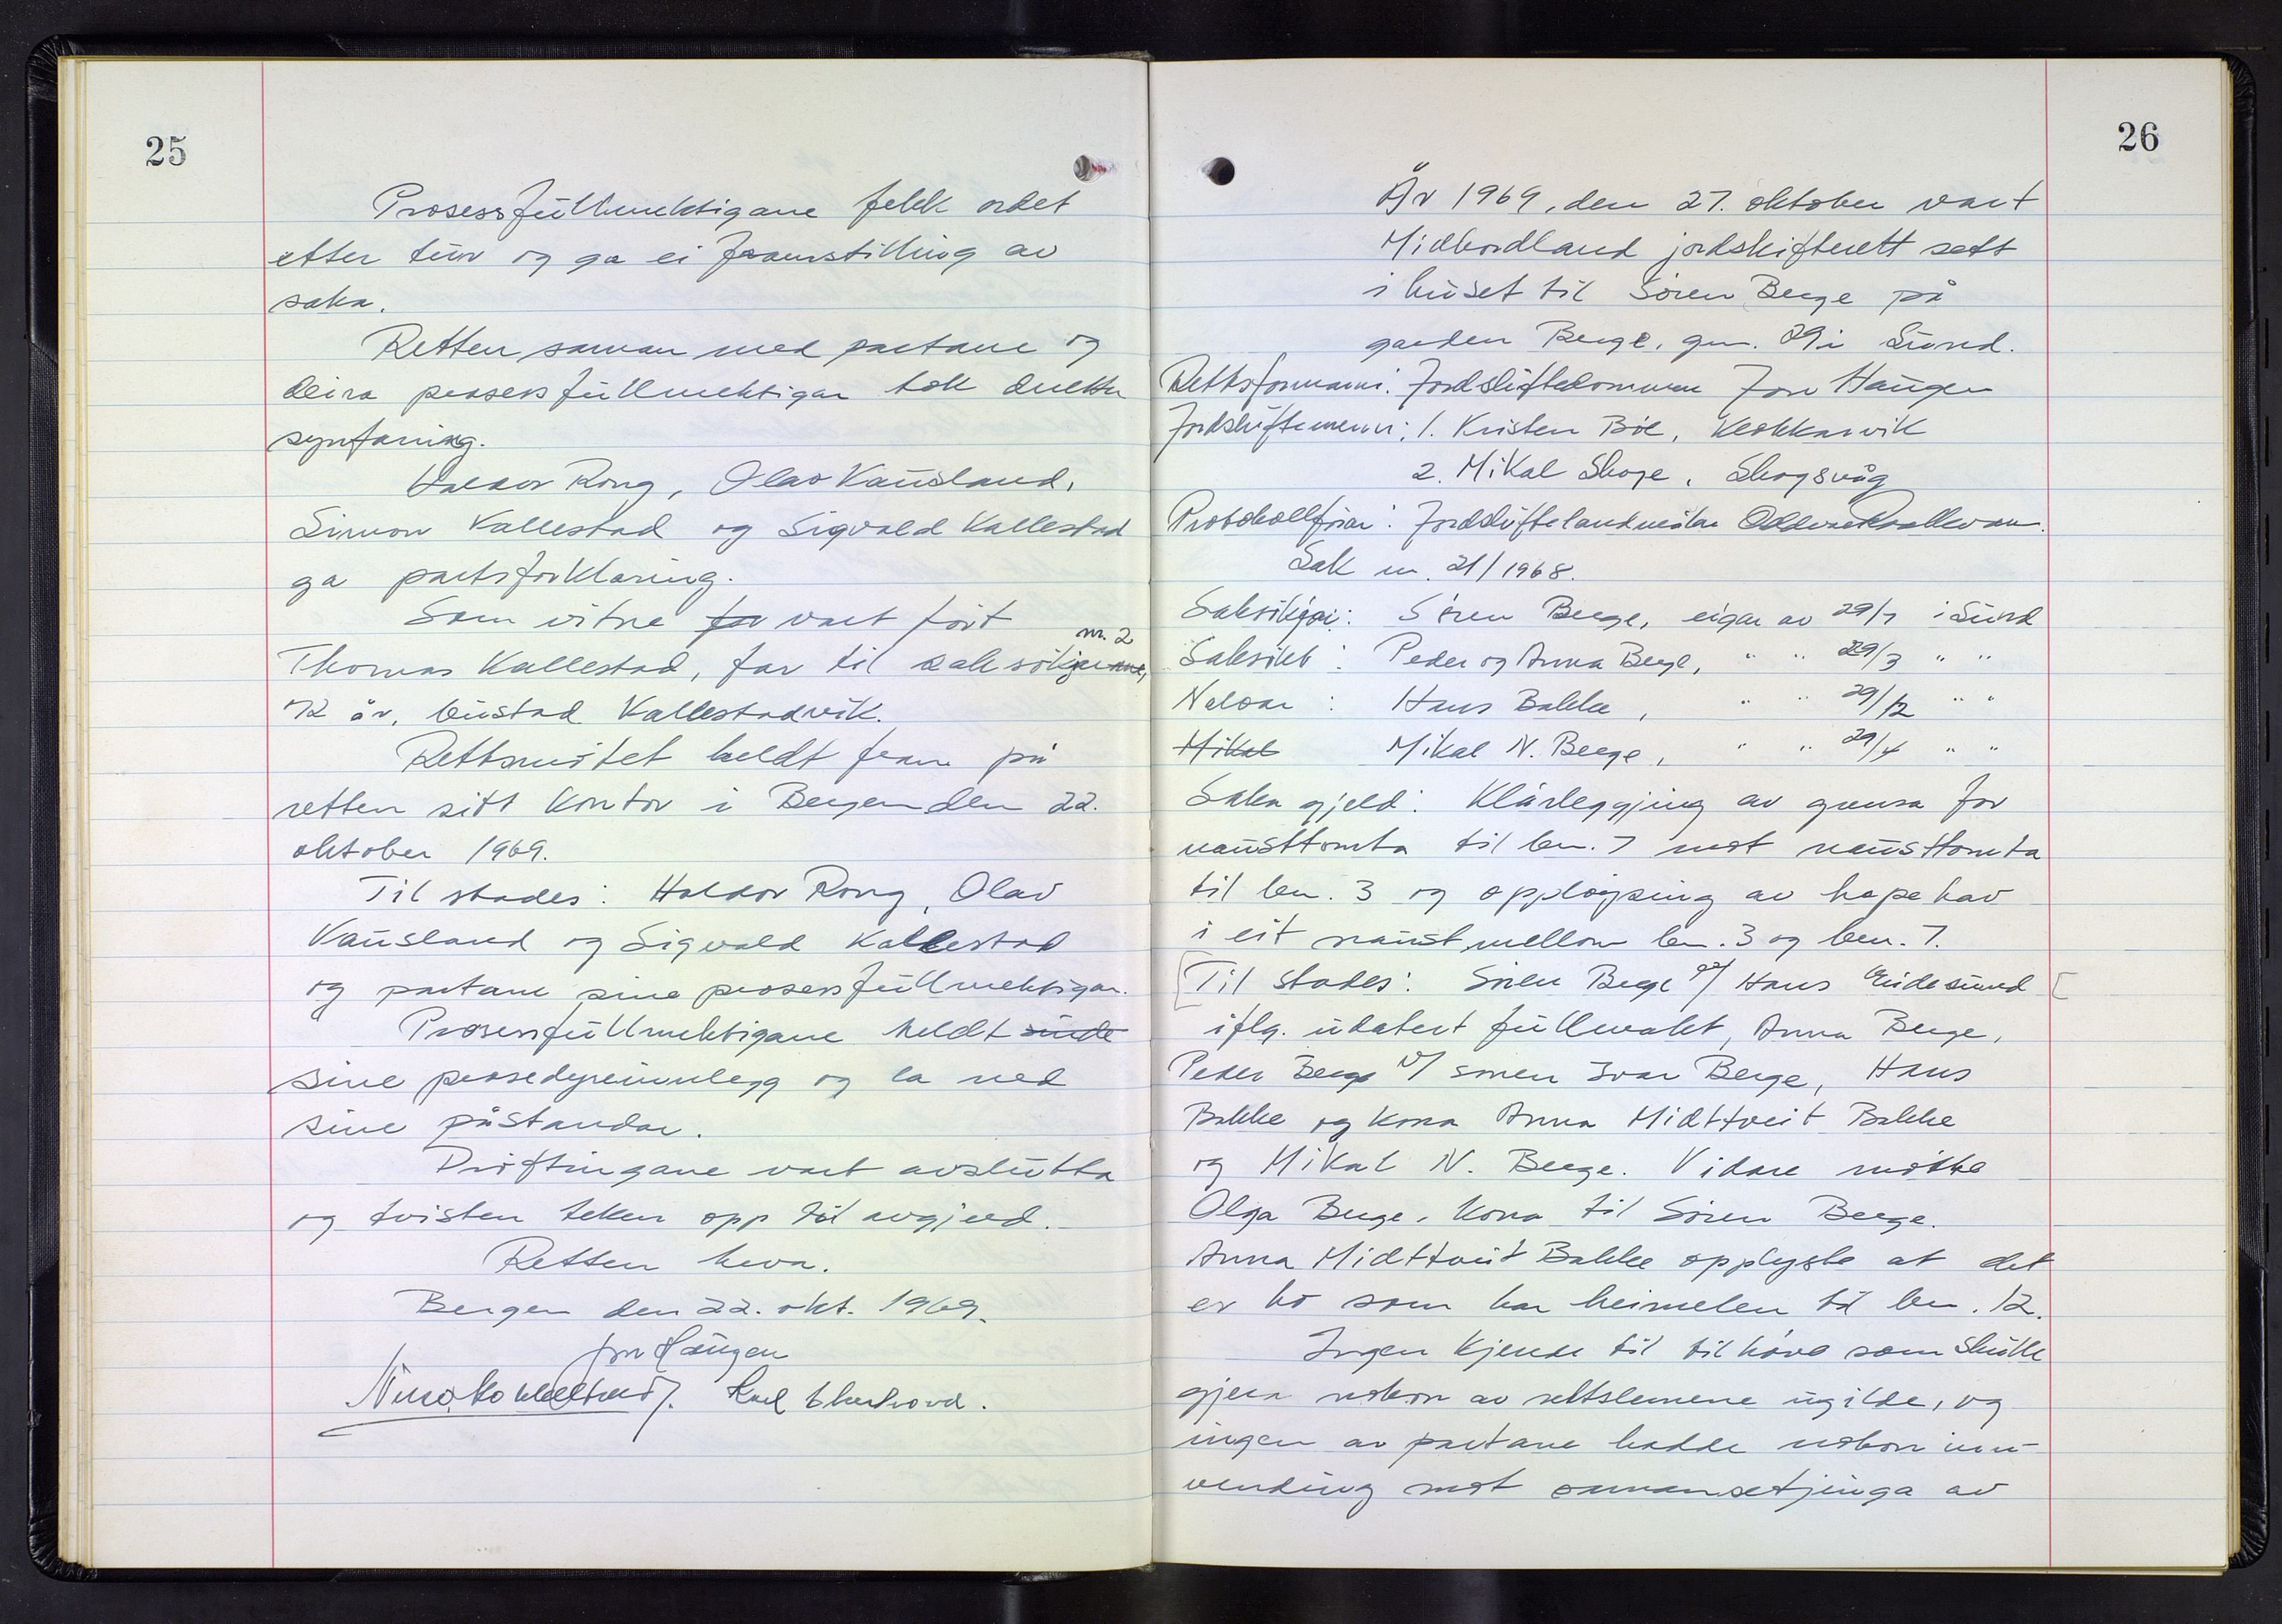 25
Prosessfullmektigane fekk ordet
etter tur og ga ei framstilling av
saka.
Retten saman med partane og
deira prosessfullmektigar tok deretter
synfaring.
Haldor Rong, Olav Kausland,
Simon Kallestad og Sigvald Kallestad
ga partsforklaring.
Som vitne for vart ført
nr. 2
Thomas Kallestad, far til saksøkjarane,
72 år, bustad Kallestadvik.
Rettsmøtet heldt fram på
retten sitt kontor i Bergen den 22.
oktober 1969.
Til stades: Haldor Rong, Olav
Kausland og Sigvald Kallestad
og partane sine prosessfullmektigar.
Prosessfullmektigane heldt
sine prosedyreinnlegg og la ned
sine påstandar.
Drøftingane vart avslutta
og tvisten teken opp til avgjerd.
Retten heva.
Bergen den 22. okt. 1969.
Jon Haugen
26
År 1969, den 27. oktober vart
Midhordland jordskifterett sett
i huset til Søren Berge på
garden Berge, gnr. 29 i Sund.
Rettsformann: Jordskiftedommar Jon Haugen
Jordskiftemenn: 1. Kristen Bøe, Klokkarvik
2. Mikal Skoge, Skogsvåg
Protokollførar: Jordskiftelandmålar Oddvar
Sak nr. 21/1968.
Saksøkjar: Søren Berge, eigar av 29/7 i Sund
Saksøkt: Peder og Anna Berge, " " 29/3 " "
Naboar: Hans Bakke, " " 29/12 " "
Mikal Mikal N. Berge, " " 29/4 " "
Saka gjeld: Klårleggjing av grensa for
nausttomta til bnr. 7 mot nausttomta
til bnr. 3 og oppløysing av hopehav
i eit naust mellom bnr. 3 og bnr. 7.
[Til stades: Søren Berge v/ Hans Eidesund [
iflg. udatert fullmakt, Anna Berge,
Peder Berge v/ sonen Ivar Berge, Hans
Bakke og kona Anna Midttveit Bakke
og Mikal N. Berge. Vidare møtte
Olga Berge, kona til Søren Berge.
Anna Midttveit Bakke opplyste at det
er ho som har heimelen til bnr. 12.
Ingen kjende til tilhøve som skulle
gjera nokon av rettslemene ugilde, og
ingen av partane hadde nokon inn-
vending mot samansetjinga av